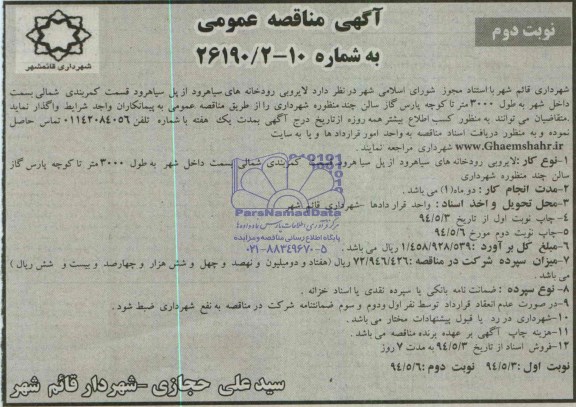 آگهی مناقصه عمومی
به شماره ۱۰-۲۶۱۹۰/۲
نوبت دوم
شهرداری قائمشهر
شهرداری قائم شهر با استناد مجوز شورای اسلامی شهر در نظر دارد لایروبی رودخانه های سیاهرود از پل سیاهرود قسمت کمربندی شمالی بسمت
داخل شهر به طول ۳۰۰۰ متر تا کوچه پارس گاز سالن چند منظوره شهرداری را از طریق مناقصه عمومی به پیمانکاران واجد شرایط واگذار نماید
.متقاضیان می توانند به منظور کسب اطلاع بیشتر همه روزه از تاریخ درج آگهی بمدت یک هفته با شماره تلفن ۰۱۱۴۲۰۸۴۰۵۶ تماس حاصل
نموده و به منظور دریافت اسناد مناقصه به واحد امور قرارداد ها و یا به سایت
www.Ghaemshahr.ir شهرداری مراجعه نمایند .
۱-نوع کار :لایروبی رودخانه های سیاهرود از پل سیاهرود قسمت کمربندی شمالی بسمت داخل شهر به طول ۳۰۰۰ متر تا کوچه پارس گاز
سالن چند منظوره شهرداری
۲-مدت انجام کار : دو ماه(۱) می باشد .
۳-محل تحویل و اخذ اسناد : واحد قرار دادها -شهرداری قائم شهر
۴-چاپ نوبت اول از تاریخ ۹۴/۵/۳
۵-چاپ نوبت دوم مورخ ۹۴/۵/۶
۶-مبلغ کل بر آورد :۱/۴۵۸/۹۲۸/۵۳۹ ریال می باشد .
۷-میزان سپرده شرکت در مناقصه :۷۲/۹۴۶/۴۲۶ ریال (هفتاد و دومیلیون و نهصد و چهل و شش هزار و چهارصد و بیست و شش ریال )
می باشد .
۸-نوع سپرده : ضمانت نامه بانکی یا سپرده نقدی یا اسناد خزانه .
۹-در صورت عدم انعقاد قرارداد توسط نفر اول ودوم و سوم ضمانتنامه شرکت در مناقصه به نفع شهرداری ضبط شود .
۱۰-شهرداری در رد یا قبول پیشنهادات مختار می باشد .
۱۱-هزینه چاپ آگهی بر عهده برنده مناقصه می باشد .
۱۲-فروش اسناد از تاریخ ۹۴/۵/۳ به مدت ۷ روز
نوبت اول :۹۴/۵/۳ نوبت دوم :۹۴/۵/۶
سید علی حجازی -شهردار قائم شهر
ParsNamadData
پایگاه اطلاع رسانی مناقصه و مزایده
۰۲۱-۸۸۳۴۹۶۷۰-۵